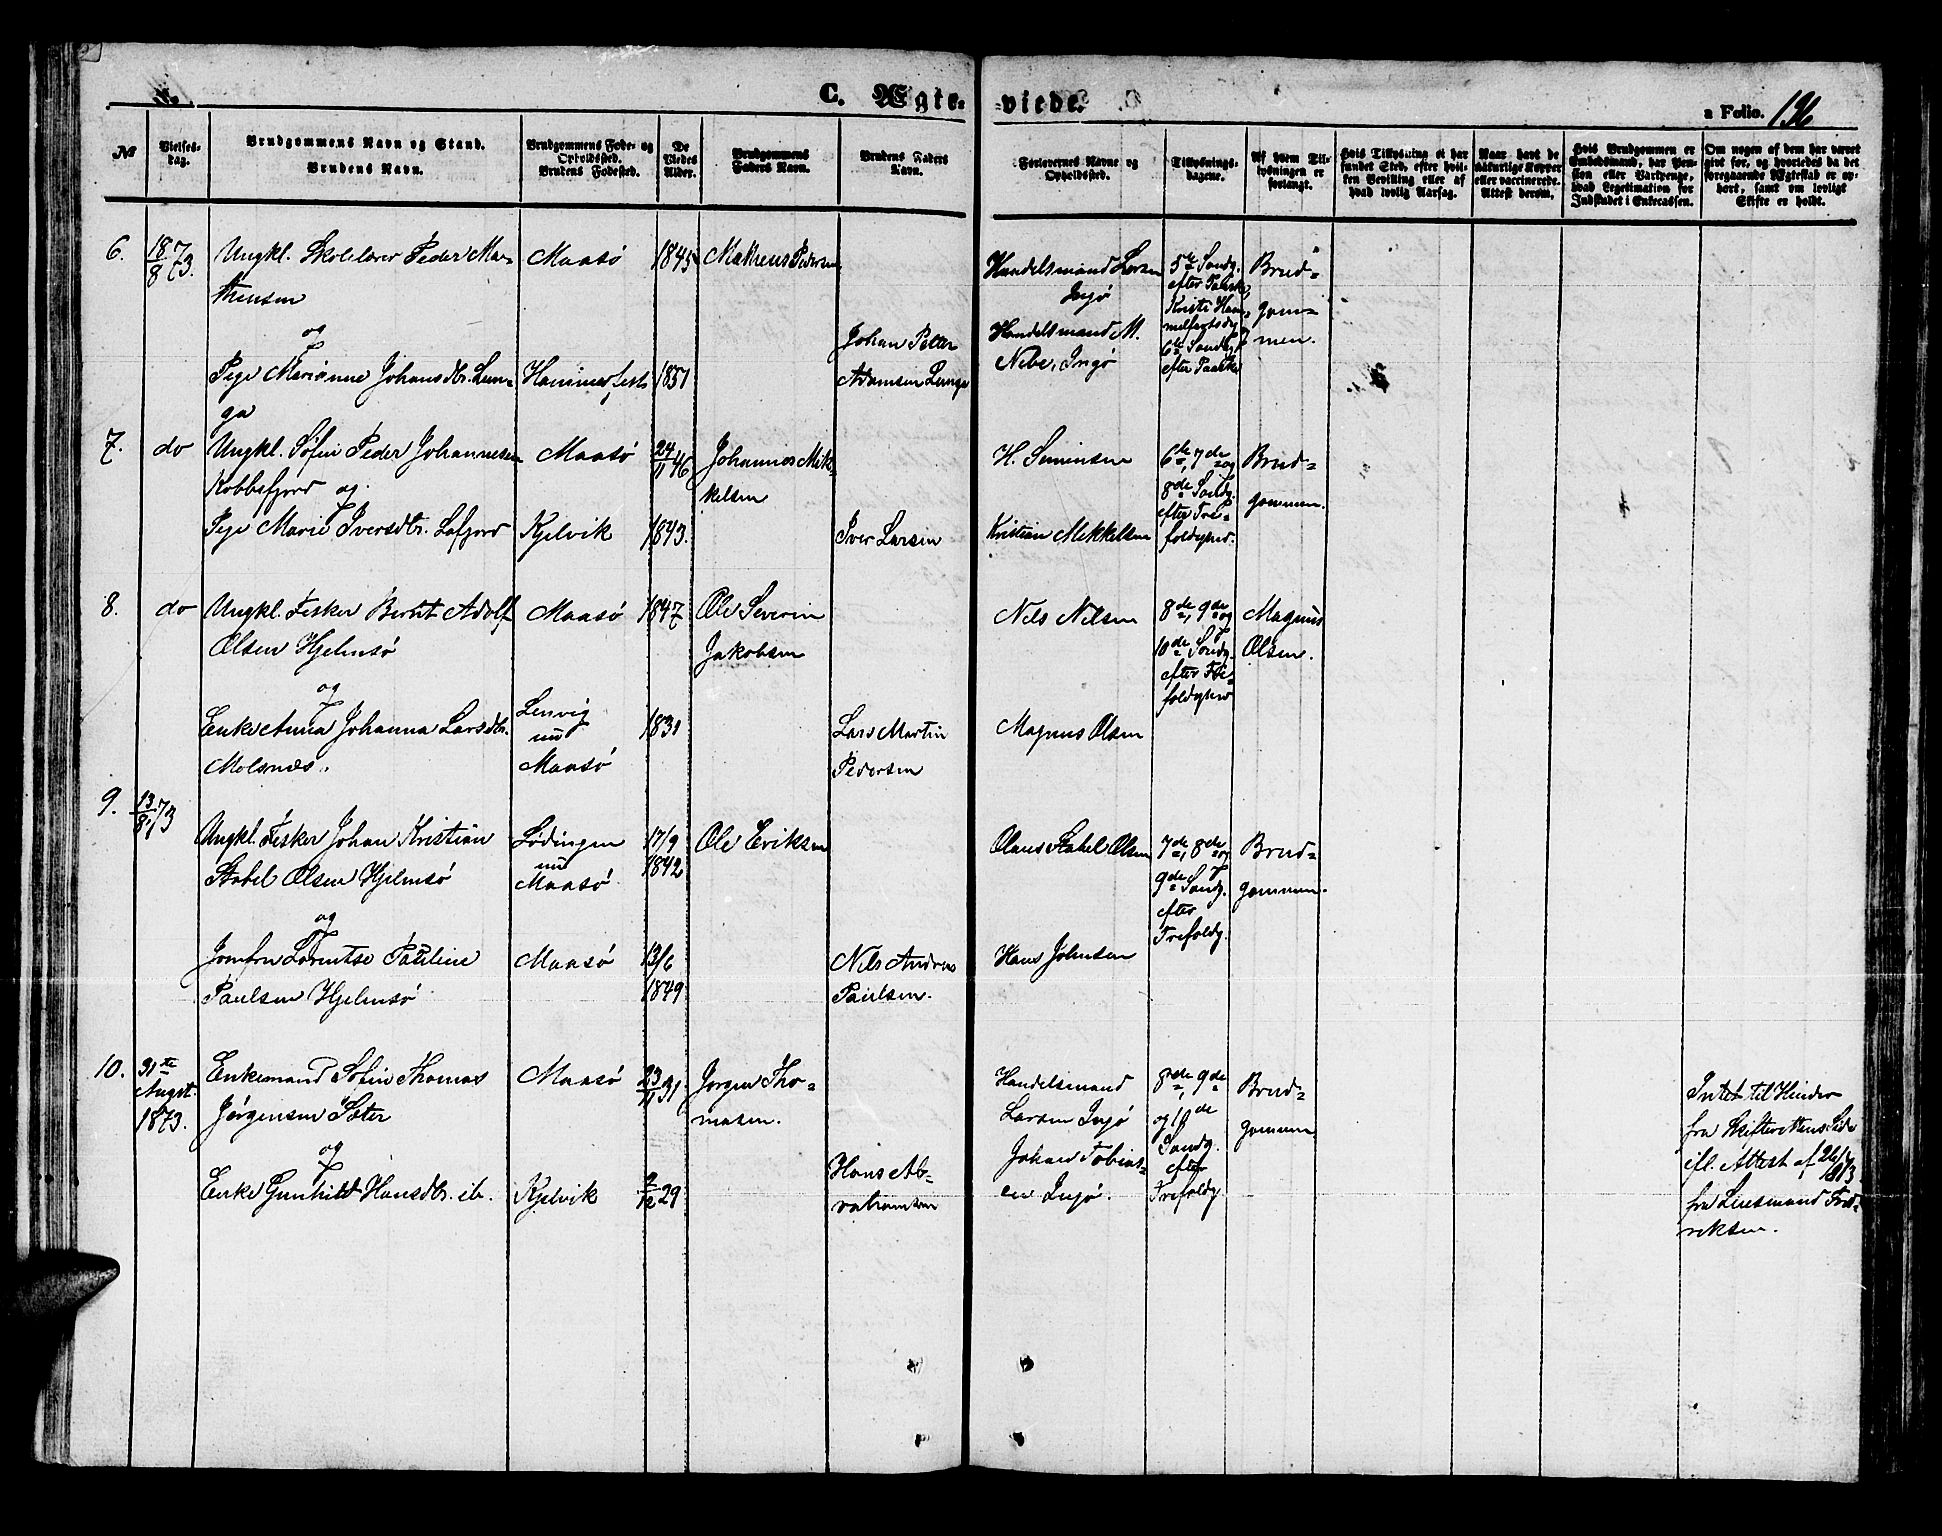 C. Ægte-viede.
a Folio. 196
№
Vielses-
dag.
Brudgommens Navn og Stand.
Brudens Navn.
Brudgommens Føde- og
Opholdssted.
Brudens Fødested.
De
Viedes
Alder.
Brudgommens
Faders Navn.
Brudens Faders
Navn.
Forlovernes Navne og
Opholdssted.
Tillysnings-
dagene.
Af hvem Til-
lysningen er
forlangt.
Hvis Tillysning ei har
fundet Sted, efter hvil-
ken Bevilling eller af
hvad lovlig Aarsag.
Naar havt de
naturlige Kopper
eller vaccinerede.
Attest derom.
Hvis Brudgommen er
Embedsmand, har Pen-
sion eller Vartpenge,
hvad Legitimation for
Indskudet i Enkecassen.
Om nogen af dem har været
givt før, og hvorledes da det
foregaaende Ægteskab er op-
hørt, samt om lovligt
Skifte er holdt.
6.
18/8 73.
Ungkl. Skolelærer Peder Ma-
theusen
og
Pige Marianne Johansdtr. Lun-
ga
Maasö
Hammerfest
1845
1851
Matheus Pedersen
Johan Petter
Adamsen Lunga
Handelsmand Larsen
Ingö
Handelsmand M.
Nebe, Ingö
5te Søndg.
efter Paaske,
Kristi Him-
melfartsdg
6te Søndg
efter Paaske
Brud-
gom-
men.
7.
do
Ungkl. Söfin Peder Johannesen
Kobbefjord og
Pige Marie Iversdtr. Lafjord
Maasö
Kjelvik
24/11 46
1843.
Johannes Mik-
kelsen
Iver Larsen
H. Simonsen
Kristian Mikkelsen
6te, 7de og
8de Søndg.
efter Tre-
foldighed.
Brud-
gommen.
8.
do
Ungkl. Fisker Bernt Adolf
Olsen Hjelmsö
og
Enke Anna Johanna Larsdtr.
Molsnæs.
Maasö
Lenvig
nu
Maasö
1847
1831
Ole Severin
Jakobsen
Lars Martin
Pedersen
Nils Nilsen
Magnus Olsen
8de, 9de og
10de Søndg.
efter Tre-
foldighed
Magnus
Olsen.
9.
13/8 73
Ungkl. Fisker Johan Kristian
Stabel Olsen Hjelmsö
og
Jomfru Lorentse Pauline
Paulsen Hjelmsö
Lödingen
nu
Maasö
Maasö
17/9
1842
13/6
1849
Ole Eriksen
Nils Andreas
Paulsen.
Olaus Stabel Olsen
Hans Johnsen
7de, 8de og
9de Søndg.
efter
Trefoldg.
Brud-
gommen.
10.
31te
August
1873.
Enkemand Söfin Thomas
Jörgensen Sæter
og
Enke Gunhild Hansdtr. ib.
Maasö
Kjelvik
23/11 31
2/12 29
Jörgen Tho-
masen.
Hans Ab-
rahamsen
Handelsmand
Larsen Ingö
Johan Tobias-
en Ingö.
8de, 9de
og 10de
Søndg.
efter
Trefoldg.
Brud-
gommen
Intet til Hinder
fra Skifterettens Side
ifl. Attest af 26/7 1873
fra Lensmand Fred-
riksen.